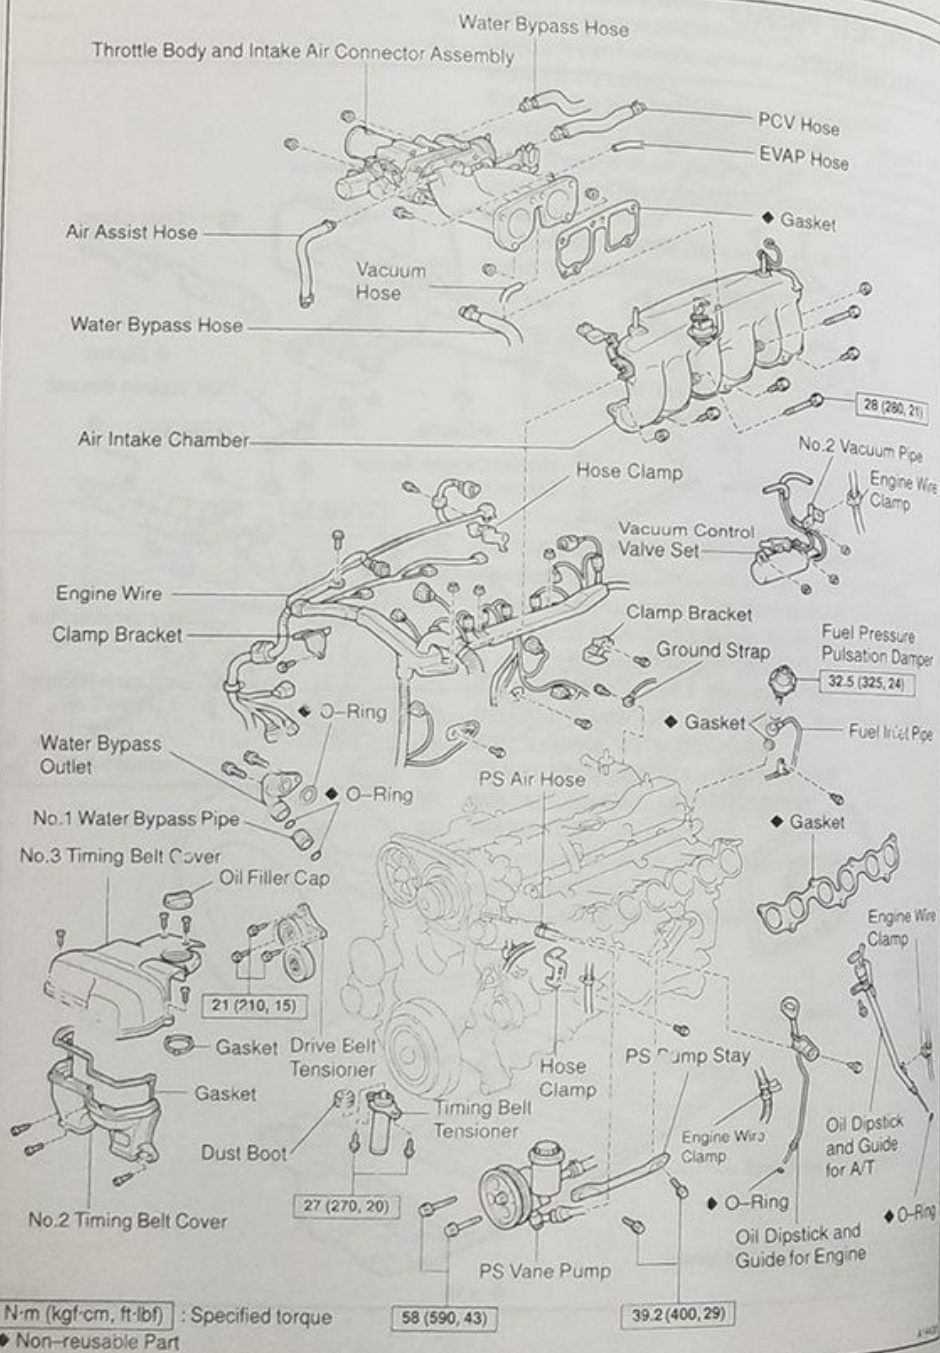 Water Bypass Hose
Throttle Body and Intake Air Connector Assembly
PCV Hose
EVAP Hose
◆ Gasket
Air Assist Hose
Vacuum
Hose
Water Bypass Hose
28 (280, 21)
Air Intake Chamber
No.2 Vacuum Pipe
Hose Clamp
Engine Wire
Clamp
Vacuum Control
Valve Set
Engine Wire
Clamp Bracket
Clamp Bracket
Ground Strap
Fuel Pressure
Pulsation Damper
32.5 (325, 24)
◆ O-Ring
◆ Gasket
Fuel Inlet Pipe
Water Bypass
Outlet
PS Air Hose
◆ O-Ring
No.1 Water Bypass Pipe
◆ Gasket
No.3 Timing Belt Cover
Oil Filler Cap
Engine Wire
Clamp
21 (210, 15)
Gasket
Drive Belt
Tensioner
Hose
Clamp
PS Pump Stay
Gasket
Timing Belt
Tensioner
Dust Boot
Engine Wire
Clamp
Oil Dipstick
and Guide
for A/T
27 (270, 20)
◆ O-Ring
◆ O-Ring
No.2 Timing Belt Cover
Oil Dipstick and
Guide for Engine
PS Vane Pump
N·m (kgf·cm, ft·lbf) : Specified torque
58 (590, 43)
39.2 (400, 29)
◆ Non-reusable Part